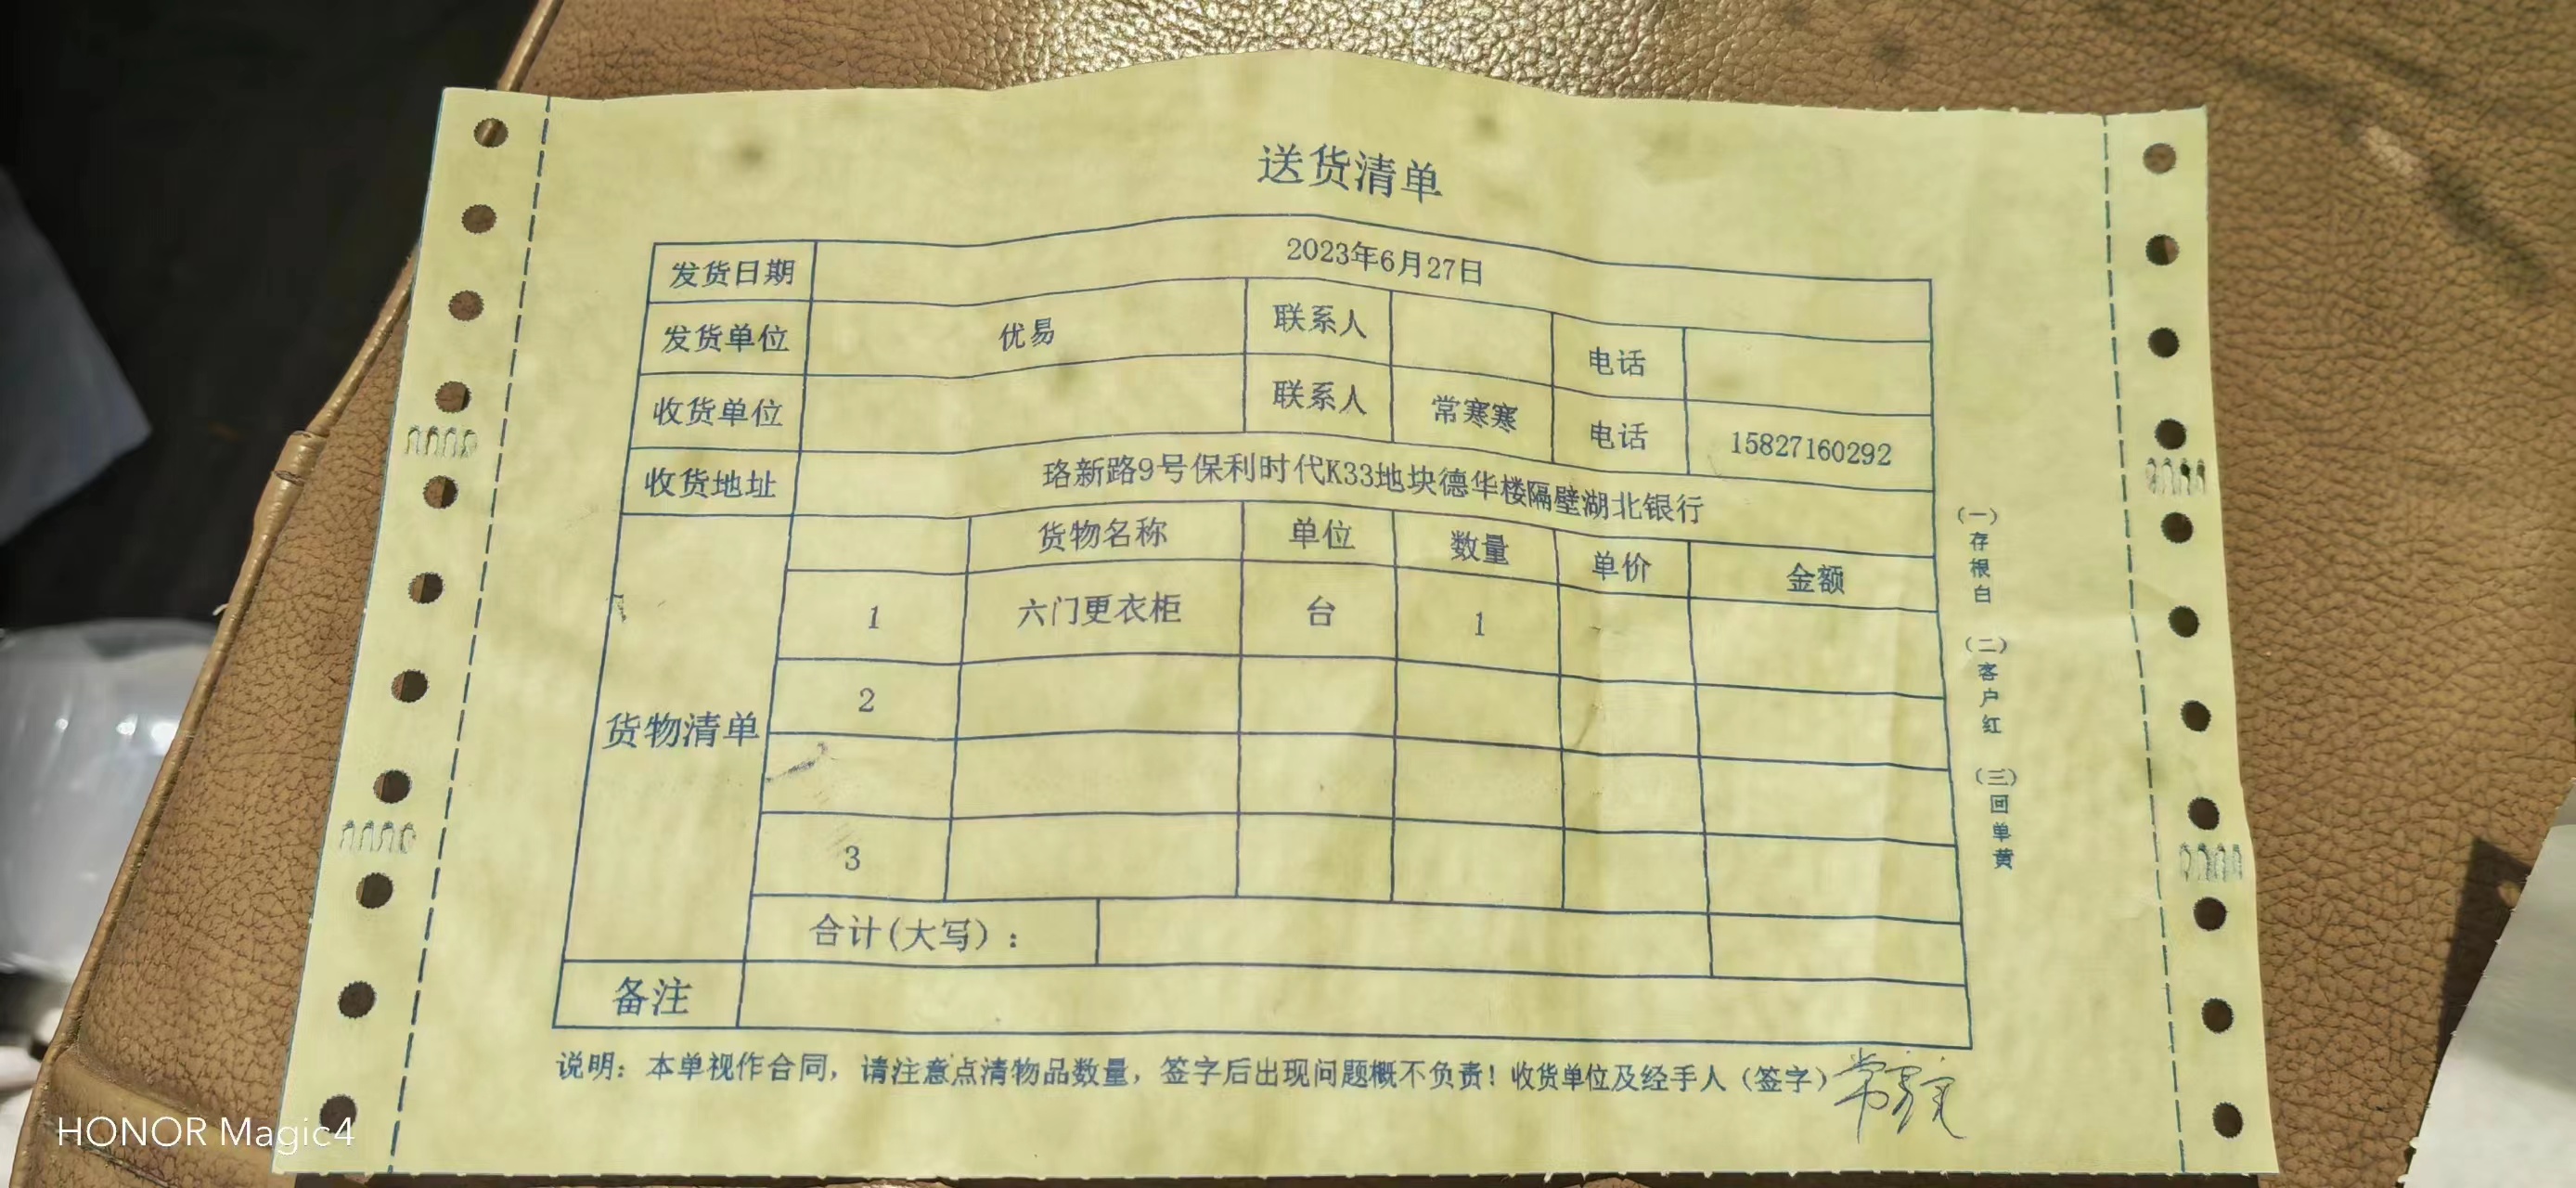 送货清单
发货日期 2023年6月27日
发货单位 优易 联系人 电话
收货单位 联系人 常寒寒 电话 15827160292
收货地址 珞新路9号保利时代K33地块德华楼隔壁湖北银行
货物清单 货物名称 单位 数量 单价 金额
1 六门更衣柜 台 1
2
3
合计(大写):
备注
说明:本单视作合同,请注意点清物品数量,签字后出现问题概不负责!收货单位及经手人(签字)
(一)存根白 (二)客户红 (三)回单黄
HONOR Magic4